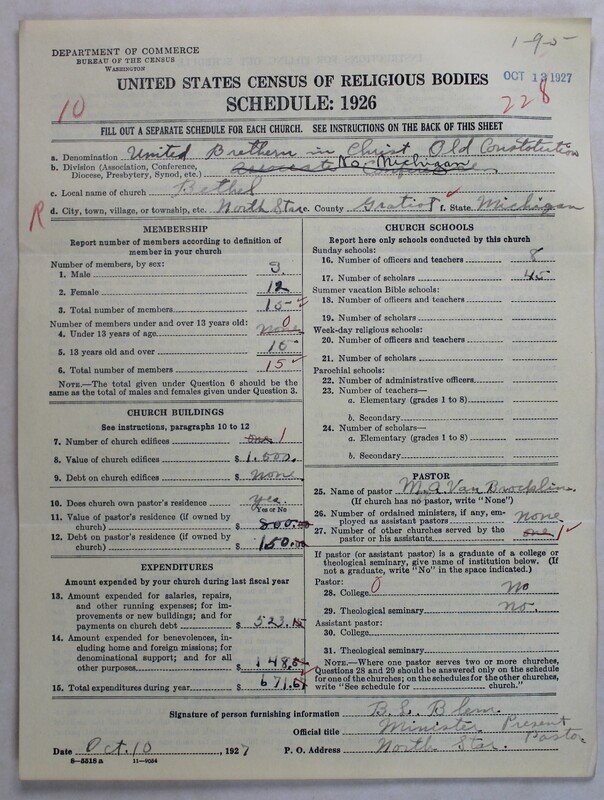 1-9-5
DEPARTMENT OF COMMERCE
BUREAU OF THE CENSUS
WASHINGTON
UNITED STATES CENSUS OF RELIGIOUS BODIES
OCT 13 1927
SCHEDULE: 1926
10
228
FILL OUT A SEPARATE SCHEDULE FOR EACH CHURCH. SEE INSTRUCTIONS ON THE BACK OF THIS SHEET
a. Denomination United Brethern in Christ Old Constotution
b. Division (Association, Conference, Diocese, Presbytery, Synod, etc.) No. Michigan
c. Local name of church Bethel
R
d. City, town, village, or township, etc. North Star e. County Gratiot f. State Michigan
MEMBERSHIP
Report number of members according to definition of member in your church
Number of members, by sex:
1. Male 3
2. Female 12
3. Total number of members 15
Number of members under and over 13 years old:
4. Under 13 years of age none 0
5. 13 years old and over 15
6. Total number of members 15
NOTE.—The total given under Question 6 should be the same as the total of males and females given under Question 3.
CHURCH BUILDINGS
See instructions, paragraphs 10 to 12
7. Number of church edifices one 1
8. Value of church edifices $ 1.000.
9. Debt on church edifices $ None
10. Does church own pastor's residence Yes
Yes or No
11. Value of pastor's residence (if owned by church) $ 800.00
12. Debt on pastor's residence (if owned by church) $ 150.00
EXPENDITURES
Amount expended by your church during last fiscal year
13. Amount expended for salaries, repairs, and other running expenses; for improvements or new buildings; and for payments on church debt $ 523.15
14. Amount expended for benevolences, including home and foreign missions; for denominational support; and for all other purposes $ 148.
15. Total expenditures during year $ 671.
CHURCH SCHOOLS
Report here only schools conducted by this church
Sunday schools:
16. Number of officers and teachers 8
17. Number of scholars 45
Summer vacation Bible schools:
18. Number of officers and teachers
19. Number of scholars
Week-day religious schools:
20. Number of officers and teachers
21. Number of scholars
Parochial schools:
22. Number of administrative officers
23. Number of teachers—
a. Elementary (grades 1 to 8)
b. Secondary
24. Number of scholars—
a. Elementary (grades 1 to 8)
b. Secondary
PASTOR
25. Name of pastor M. A. Van Brocklin
(If church has no pastor, write "None")
26. Number of ordained ministers, if any, employed as assistant pastors none
27. Number of other churches served by the pastor or his assistants one 1
If pastor (or assistant pastor) is a graduate of a college or theological seminary, give name of institution below. (If not a graduate, write "No" in the space indicated.)
Pastor:
28. College 0 No
29. Theological seminary No.
Assistant pastor:
30. College
31. Theological seminary
NOTE.—Where one pastor serves two or more churches, Questions 28 and 29 should be answered only on the schedule for one of the churches; on the schedules for the other churches, write "See schedule for ........ church."
Signature of person furnishing information B. S. Blem
Official title Minister. Present Pastor
Date Oct. 10, 1927 P. O. Address North Star.
8—5518 a 11—9034